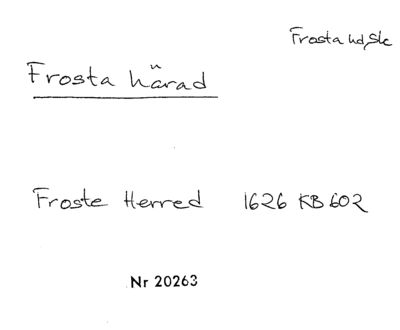 Frosta hd, Sk
Frosta härad
Froste Herred 1626 KB 602
Nr 20263